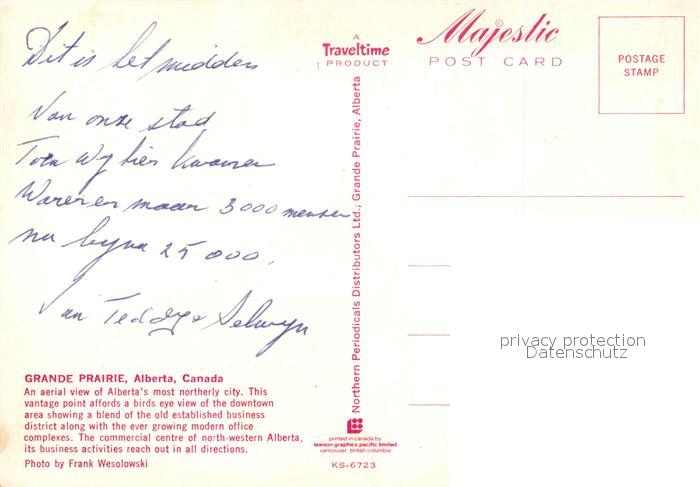 Dit is het midden
Van onze stad
Toen wy hier kwamen
Waren er maar 3000 mensen
nu byna 25 000.
van Teddy & Selwyn
GRANDE PRAIRIE, Alberta, Canada
An aerial view of Alberta's most northerly city. This
vantage point affords a birds eye view of the downtown
area showing a blend of the old established business
district along with the ever growing modern office
complexes. The commercial centre of north-western Alberta,
its business activities reach out in all directions.
Photo by Frank Wesolowski
A
Traveltime
PRODUCT
Northern Periodicals Distributors Ltd.; Grande Prairie, Alberta
printed in canada by
lawson graphics pacific limited
vancouver, british columbia
KS-6723
Majestic
POST CARD
POSTAGE
STAMP
privacy protection
Datenschutz